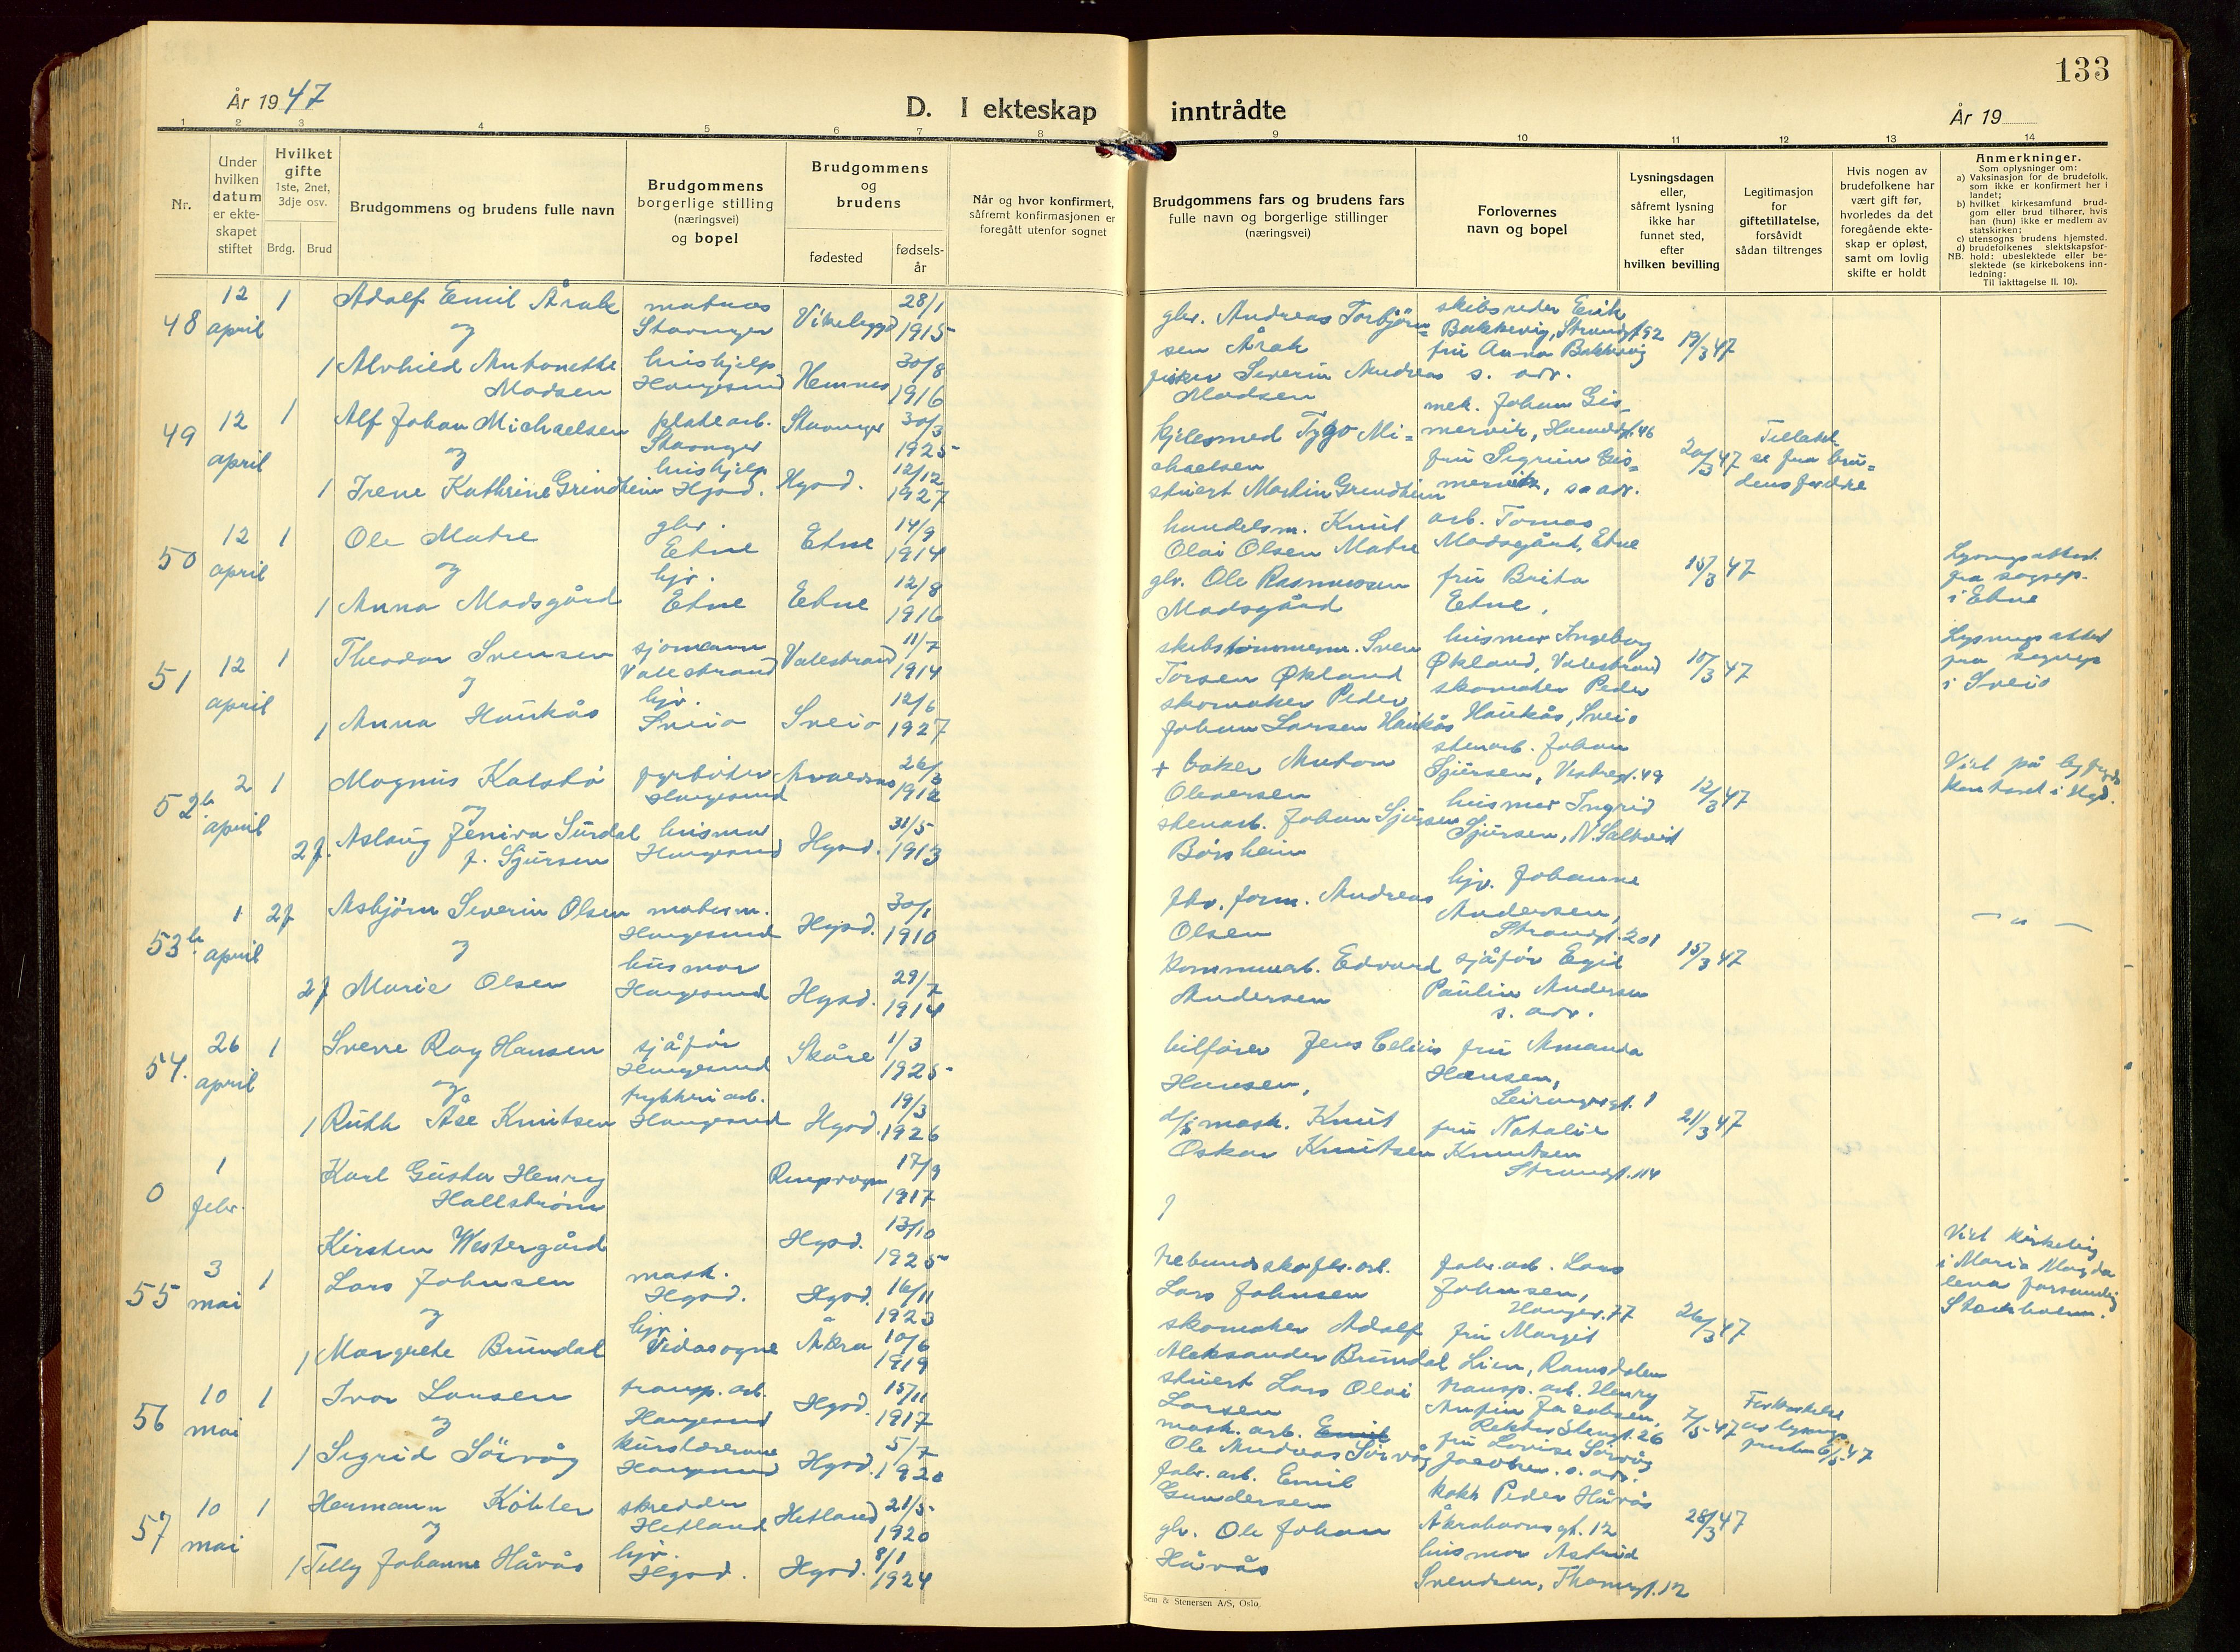 133
År 1947
D. I ekteskap inntrådte
År 19
1 2 3 4 5 6 7 8 9 10 11 12 13 14
Nr.
Under hvilken datum er ekteskapet stiftet
Hvilket gifte
1ste, 2net, 3dje osv.
Brdg. Brud
Brudgommens og brudens fulle navn
Brudgommens borgerlige stilling (næringsvei) og bopel
Brudgommens og brudens
fødested
fødsels-år
Når og hvor konfirmert, såfremt konfirmasjonen er foregått utenfor sognet
Brudgommens fars og brudens fars fulle navn og borgerlige stillinger (næringsvei)
Forlovernes navn og bopel
Lysningsdagen eller, såfremt lysning ikke har funnet sted, efter hvilken bevilling
Legitimasjon for giftetillatelse, forsåvidt sådan tiltrenges
Hvis nogen av brudefolkene har vært gift før, hvorledes da det foregående ekteskap er opløst, samt om lovlig skifte er holdt
Anmerkninger.
Som oplysninger om:
a) Vaksinasjon for de brudefolk. som ikke er konfirmert her i landet;
b) hvilket kirkesamfund brudgom eller brud tilhører, hvis han (hun) ikke er medlem av statskirken;
c) utensogns brudens hjemsted.
d) brudefolkenes slektskapsforhold: ubeslektede eller beslektede (se kirkebokens innledning:
NB. Til iakttagelse II. 10).
48 12 april 1 Adolf Emil Årak
og
matros Stavanger
28/1 1915
1 Alvhild Antonette Madsen
hushjelp Haugesund Hemnes 30/8 1916
gbr. Andreas Torbjørnsen Årak
fisker Severin Andreas Madsen
skibsreder Erik Bakkevig, Strandgt. 92
fru Anna Bakkevig s. adr.
19/3 47
49 12 april 1 Alf Johan Michaelsen
og
platearb. Stavanger Stavanger 30/3 1925
1 Irene Kathrine Grindheim
hushjelp Hgsd. Hgsd. 12/12 1927
kjelesmed Tygo Michaelsen
stuert Martin Grindheim
mek. Johan Gismervik,
fru Sigrun Gismervik, s. adr.
20/3 47
Tillatelse fra brudens foreldre
50 12 april 1 Ole Matre
og
gbr. Etne Etne 14/9 1914
1 Anna Madsgård
hjv. Etne Etne 12/8 1916
handelsm. Knut Olai Olsen Matre
gbr. Ole Rasmussen Madsgård
arb. Tomas Madsgård, Etne
fru Brita Etne,
15/3 47
Lysningsattest fra sognep. i Etne
51 12 april 1 Theodor Svensen
og
sjømann Valestrand Valestrand 11/7 1914
1 Anna Haukås
hjv. Sveio Sveio 12/6 1927
skibstømmerm. Sven Torsen Økland
skomaker Peder Johan Larsen Haukås
husmor Ingeborg Økland, Valestrand
skomaker Peder Haukås, Sveio
15/3 47
Lysningsattest fra sognep i Sveio
52b 2 april 1 Magnus Kalstø
og
fyrbøter Haugesund Avaldsnes 26/3 1912
2f. Aslaug Jenira Surdal f. Sjursen
husmor Haugesund Hgsd. 31/5 1913
+ baker Anton Olversen
stenarb. Johan Sjursen Børsheim
stenarb. Johan Sjursen, Vestregt. 49
husmor Ingrid Sjursen, N. Saltveit
12/3 47
Viet på byfogdkontoret i Hgd.
53b 1 april 2f Asbjørn Severin Olsen
og
matros m. Haugesund Hgsd. 30/1 1910
2f Marie Olsen
husmor Haugesund Hgsd. 29/7 1914
fbr. form. Andreas Olsen
kommunearb. Edvard Andersen
hjv. Johanne Andersen, Strandgt. 201
sjåfør Egil Paulin Andersen s. adr.
15/3 47
— " —
54. 26 april 1 Sverre Roy Hansen
og
sjåfør Haugesund Skåre 1/3 1925
1 Ruth Åse Knutsen
trykkeriarb. Haugesund Hgsd. 19/3 1926
bilfører Jens Celius Hansen,
d/s mask. Knut Oskar Knutsen
fru Amanda Hansen,
fru Natalie Knudsen Strandgt. 114
21/3 47
0 1 febr. Karl Gusta Henry Hallstrøm
17/9 1917
Kirsten Westergård
Hgsd. 13/10 1925
Viet kirkelig i Maria Magdalena forsamling Stockholm.
55 3 mai 1 Lars Johnsen
og
mask. Hgsd. Hgsd. 16/11 1923
1 Margrete Brundal
hjv. Vedasogne Åkra 10/6 1919
Lars Johnsen
skomaker Adolf Aleksander Brundal
fabr. arb. Lars Johnsen, Haugev. 77
fru Margit Lien, Ramsdalen
26/3 47
56 10 mai 1 Ivar Larsen
og
transp. arb. Haugesund Hgsd. 15/11 1917
1 Sigrid Sørvåg
Haugesund Hgsd. 5/7 1920
stuert Lars Olai Larsen
mask. arb. Emil
Ole Andreas Sørvåg
transp. arb. Henry Anfin Jacobsen,
fru Lovise Sørvåg Jacobsen. s. adr.
7/5-47
57 10 mai 1 Hermann Köhler
og
skredder Hetland Hetland 21/5 1920
1 Telly Johanne Håvås
hjv. Hgsd. Hgsd. 8/1 1924
fabr. arb. Emil Gundersen
gbr. Ole Johan Håvås
kokk Peder Håvås Åkrahavnsgt. 12
husmor Astrid Svendsen, Thomsgt. 12
28/3 47
Sem & Stenersen A/S, Oslo.